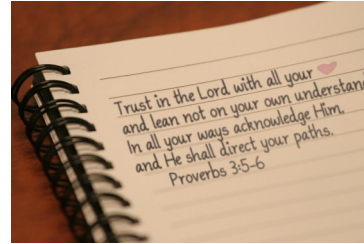 Trust in the Lord with all your
and lean not on your own understan
In all your ways acknowledge Him,
and He shall direct your paths.
Proverbs 3:5-6